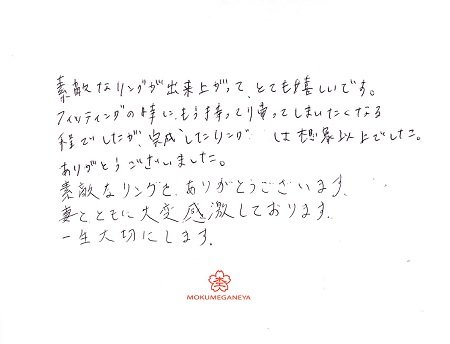 素敵なリングが出来上がって、とても嬉しいです。
フィッティングの時に、もう持って帰ってしまいたくなる
程でしたが、完成したリングは想象以上でした。
ありがとうございました。
素敵なリングを、ありがとうございます。
妻とともに大変感激しております。
一生大切にします。
MOKUMEGANEYA